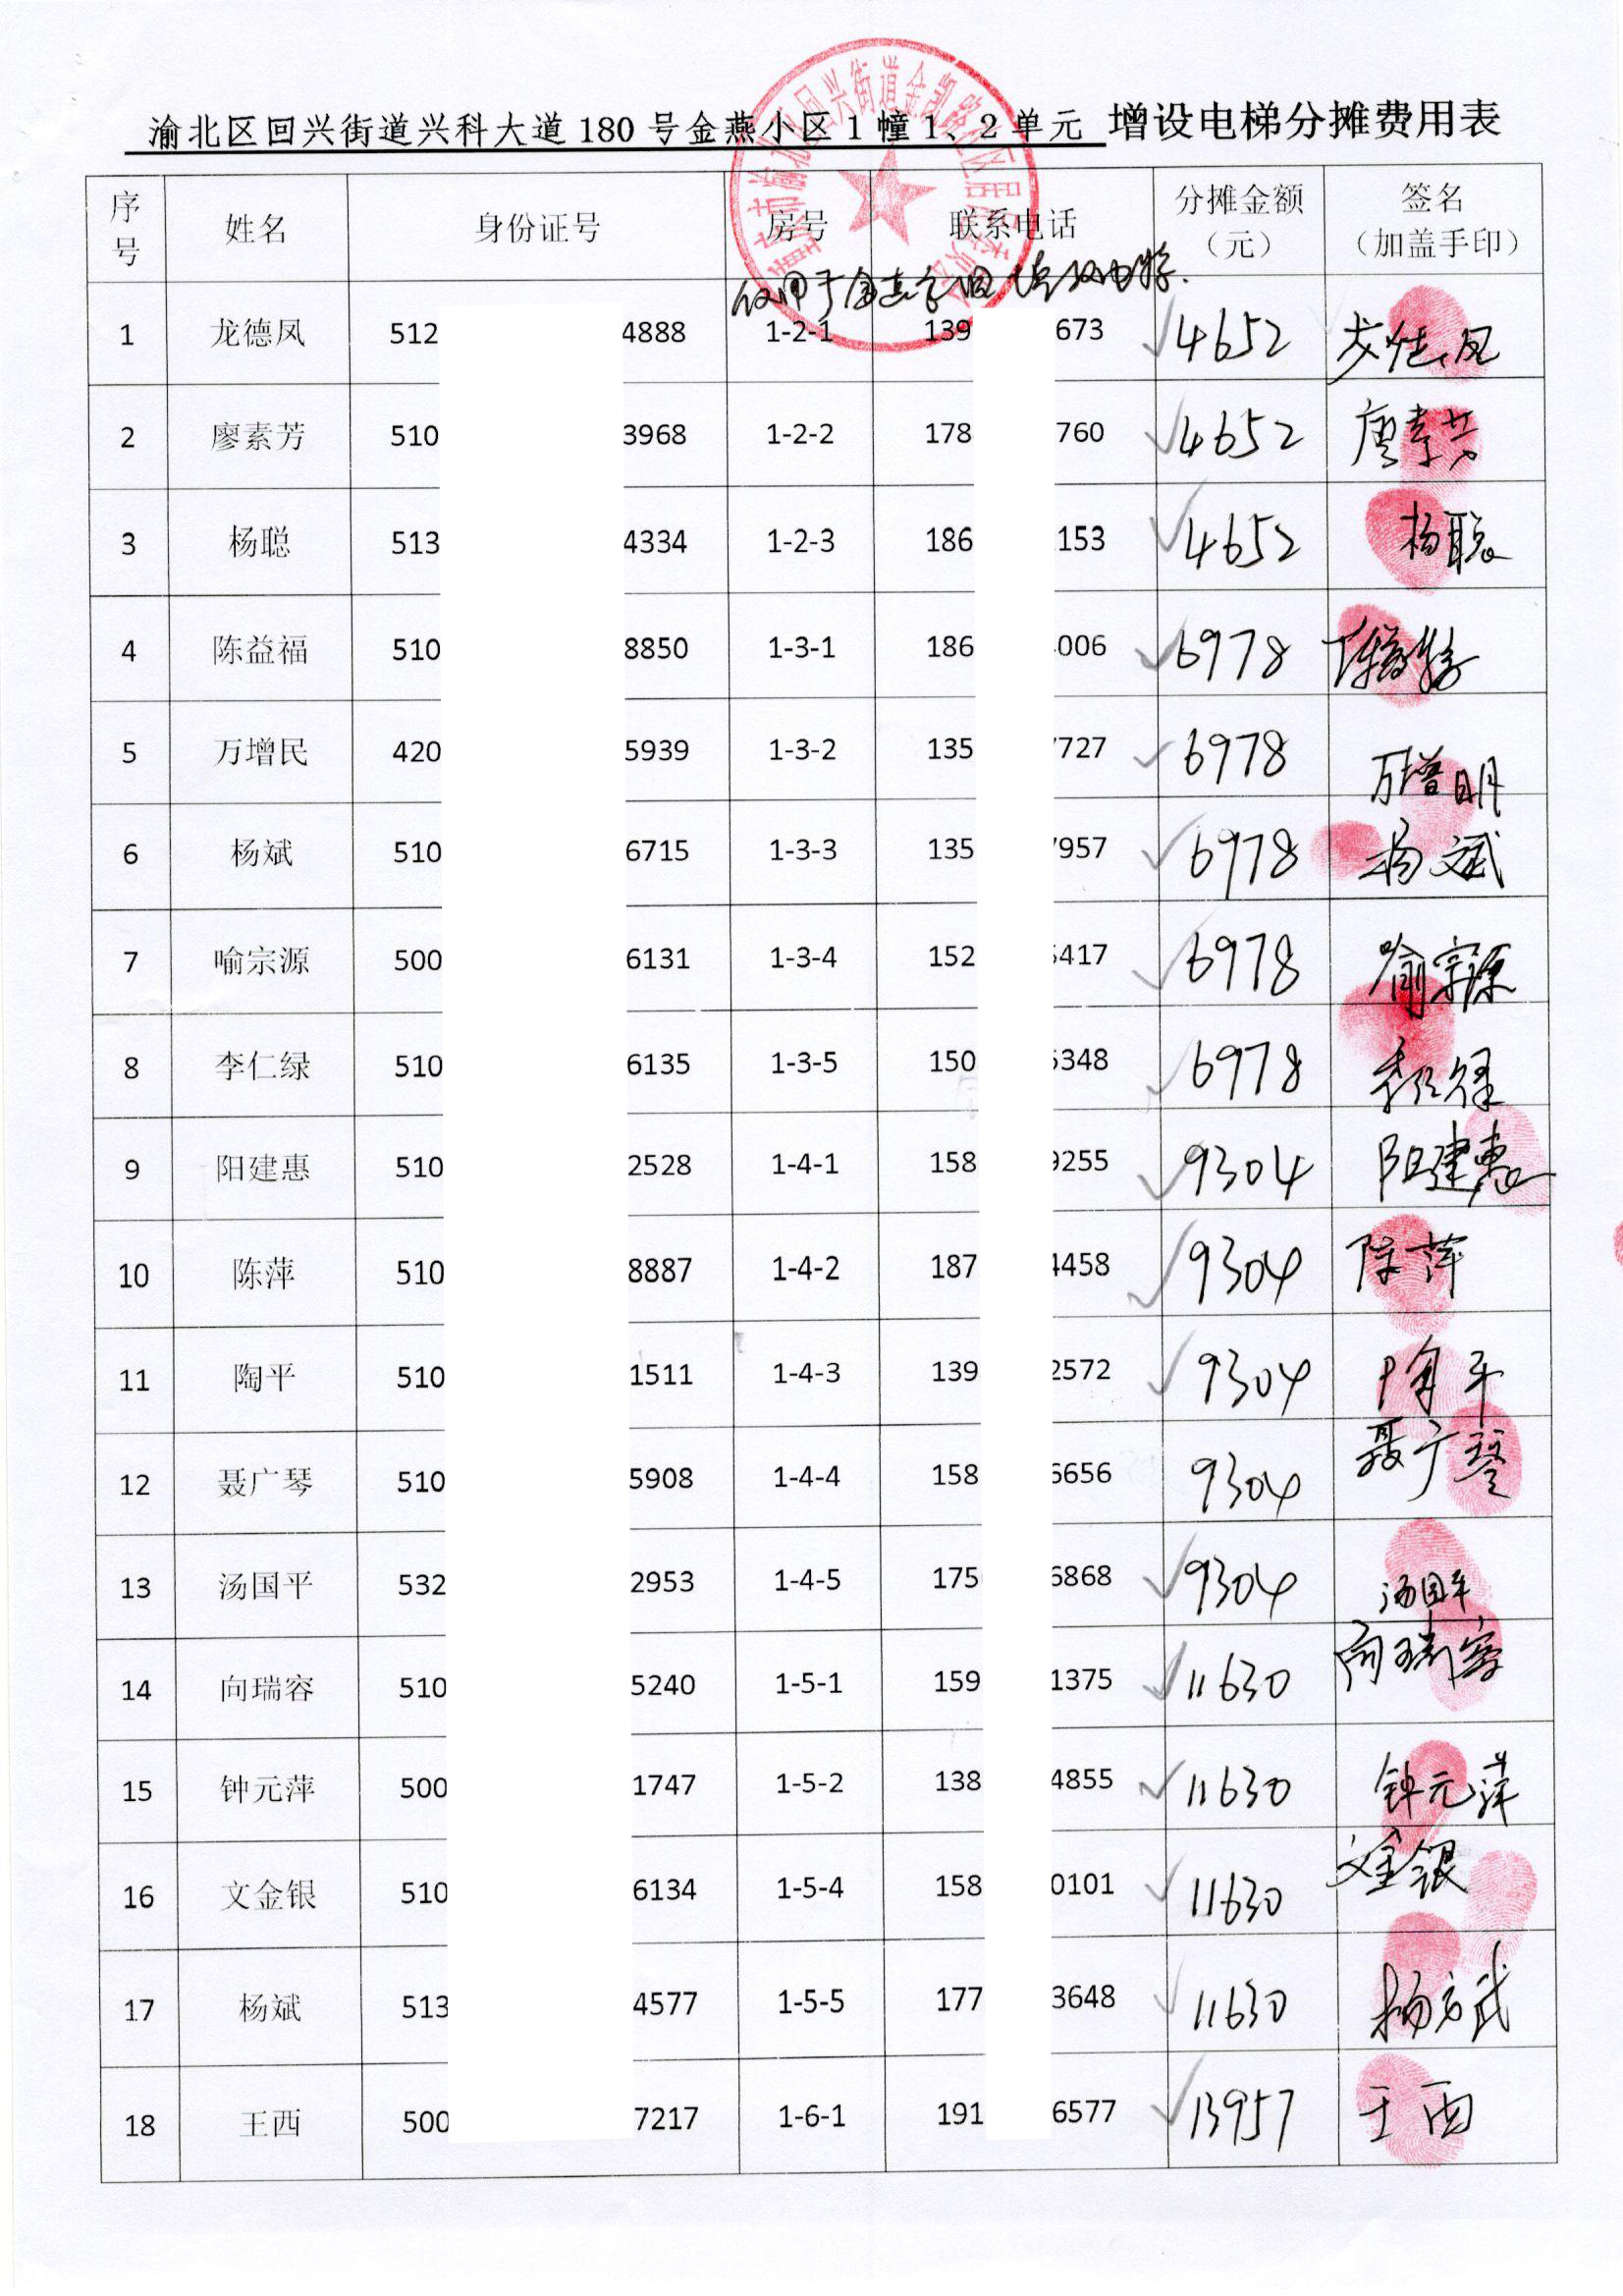 渝北区回兴街道兴科大道180号金燕小区1幢1、2单元 增设电梯分摊费用表
序号 姓名 身份证号 房号 联系电话 分摊金额（元） 签名（加盖手印）
仅用于金燕小区
1 龙德凤 512 4888 1-2-1 139 673 4652 龙德凤
2 廖素芳 510 3968 1-2-2 178 760 4652 廖素芳
3 杨聪 513 4334 1-2-3 186 153 4652 杨聪
4 陈益福 510 8850 1-3-1 186 006 6978 陈益福
5 万增民 420 5939 1-3-2 135 727 6978 万增明
6 杨斌 510 6715 1-3-3 135 7957 6978 杨斌
7 喻宗源 500 6131 1-3-4 152 5417 6978 喻宗源
8 李仁绿 510 6135 1-3-5 150 5348 6978 李仁绿
9 阳建惠 510 2528 1-4-1 158 9255 9304 阳建惠
10 陈萍 510 8887 1-4-2 187 4458 9304 陈萍
11 陶平 510 1511 1-4-3 139 2572 9304 陶平
12 聂广琴 510 5908 1-4-4 158 6656 9304 聂广琴
13 汤国平 532 2953 1-4-5 175 6868 9304 汤国平
14 向瑞容 510 5240 1-5-1 159 1375 11630 向瑞容
15 钟元萍 500 1747 1-5-2 138 4855 11630 钟元萍
16 文金银 510 6134 1-5-4 158 0101 11630 文金银
17 杨斌 513 4577 1-5-5 177 3648 11630 杨方武
18 王西 500 7217 1-6-1 191 6577 13957 王西